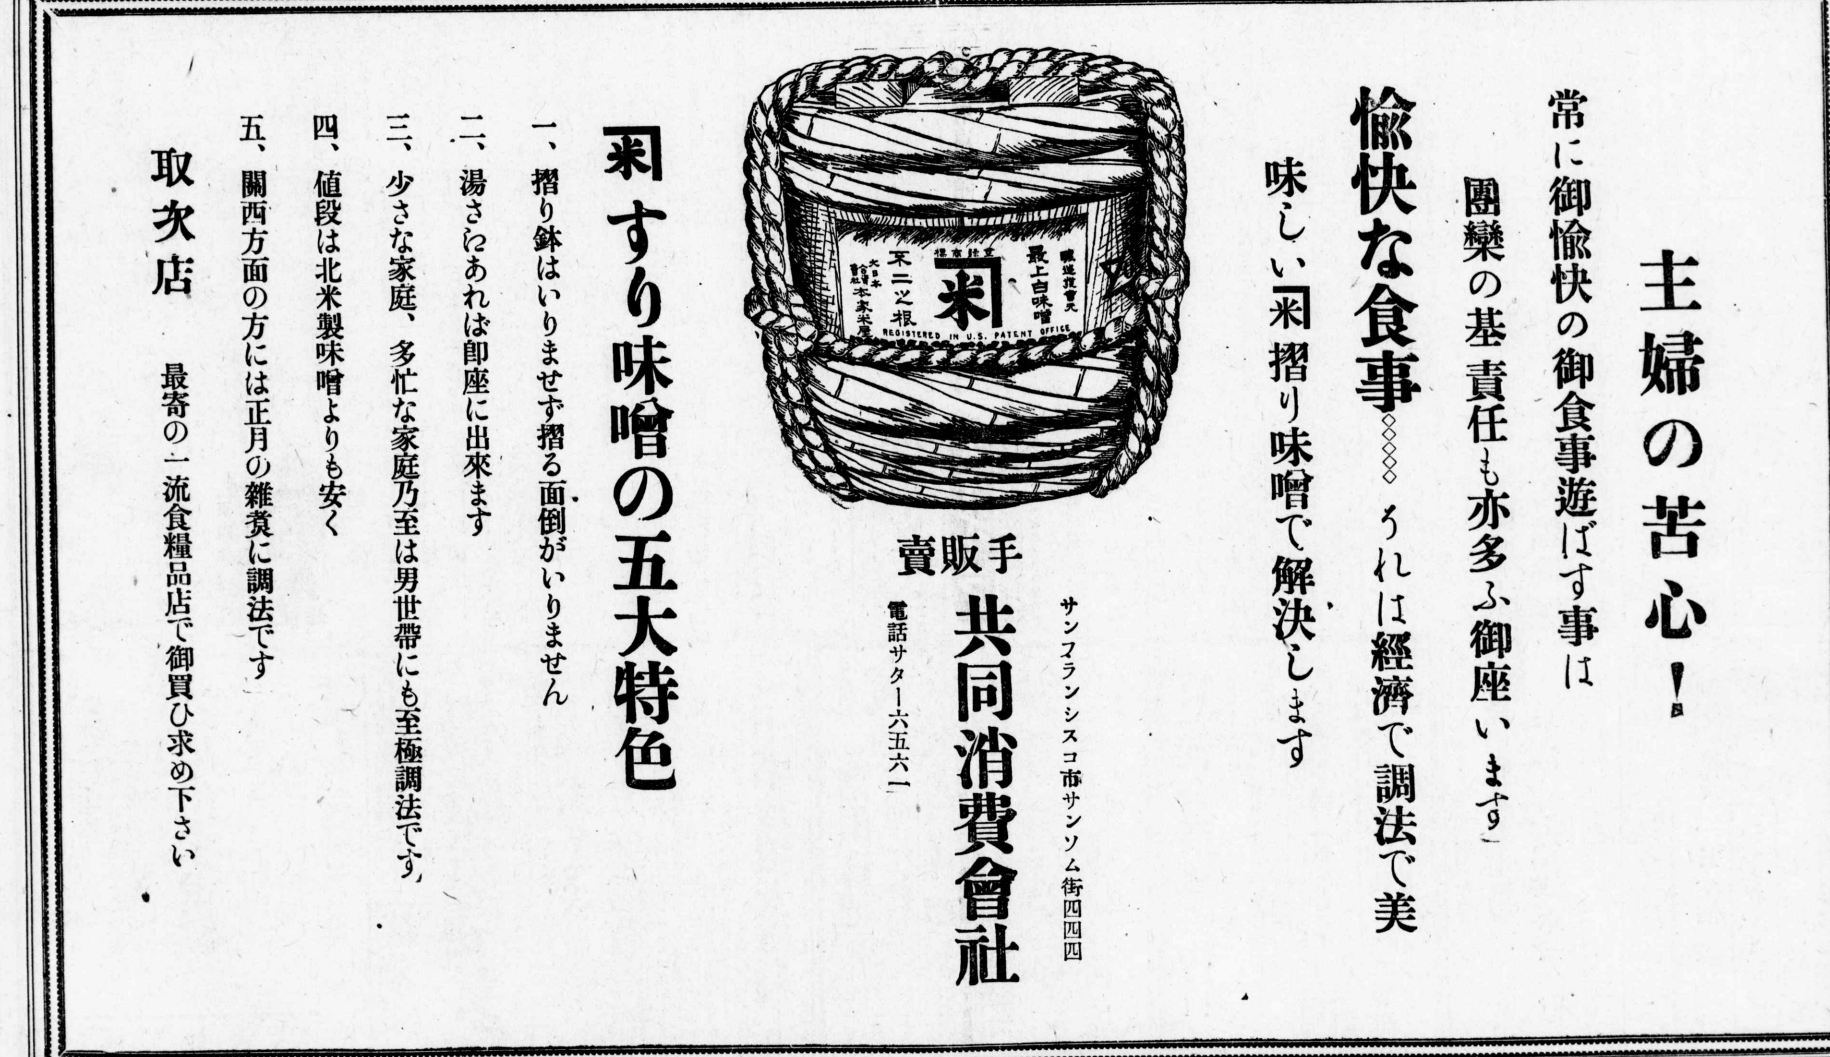 主婦の苦心!
常に御愉快の御食事遊ばす事は
團欒の基 責任も亦多ふ御座います
愉快な食事◇◇◇◇ それは經濟で調法で美
味しい米摺り味噌で解決します
最上白味噌
登録商標
米
不二之根
大日本
合資會社
本家米屋
REGISTERED IN U.S. PATENT OFFICE
手販賣
サンフランシスコ市サンソム街四四四
共同消費會社
電話サター六五六一
米すり味噌の五大特色
一、摺り鉢はいりませず摺る面倒がいりません
二、湯さへあれば卽座に出來ます
三、少さな家庭、多忙な家庭乃至は男世帶にも至極調法です
四、値段は北米製味噌よりも安く
五、關西方面の方には正月の雜煑に調法です
取次店 最寄の一流食糧品店で御買ひ求め下さい